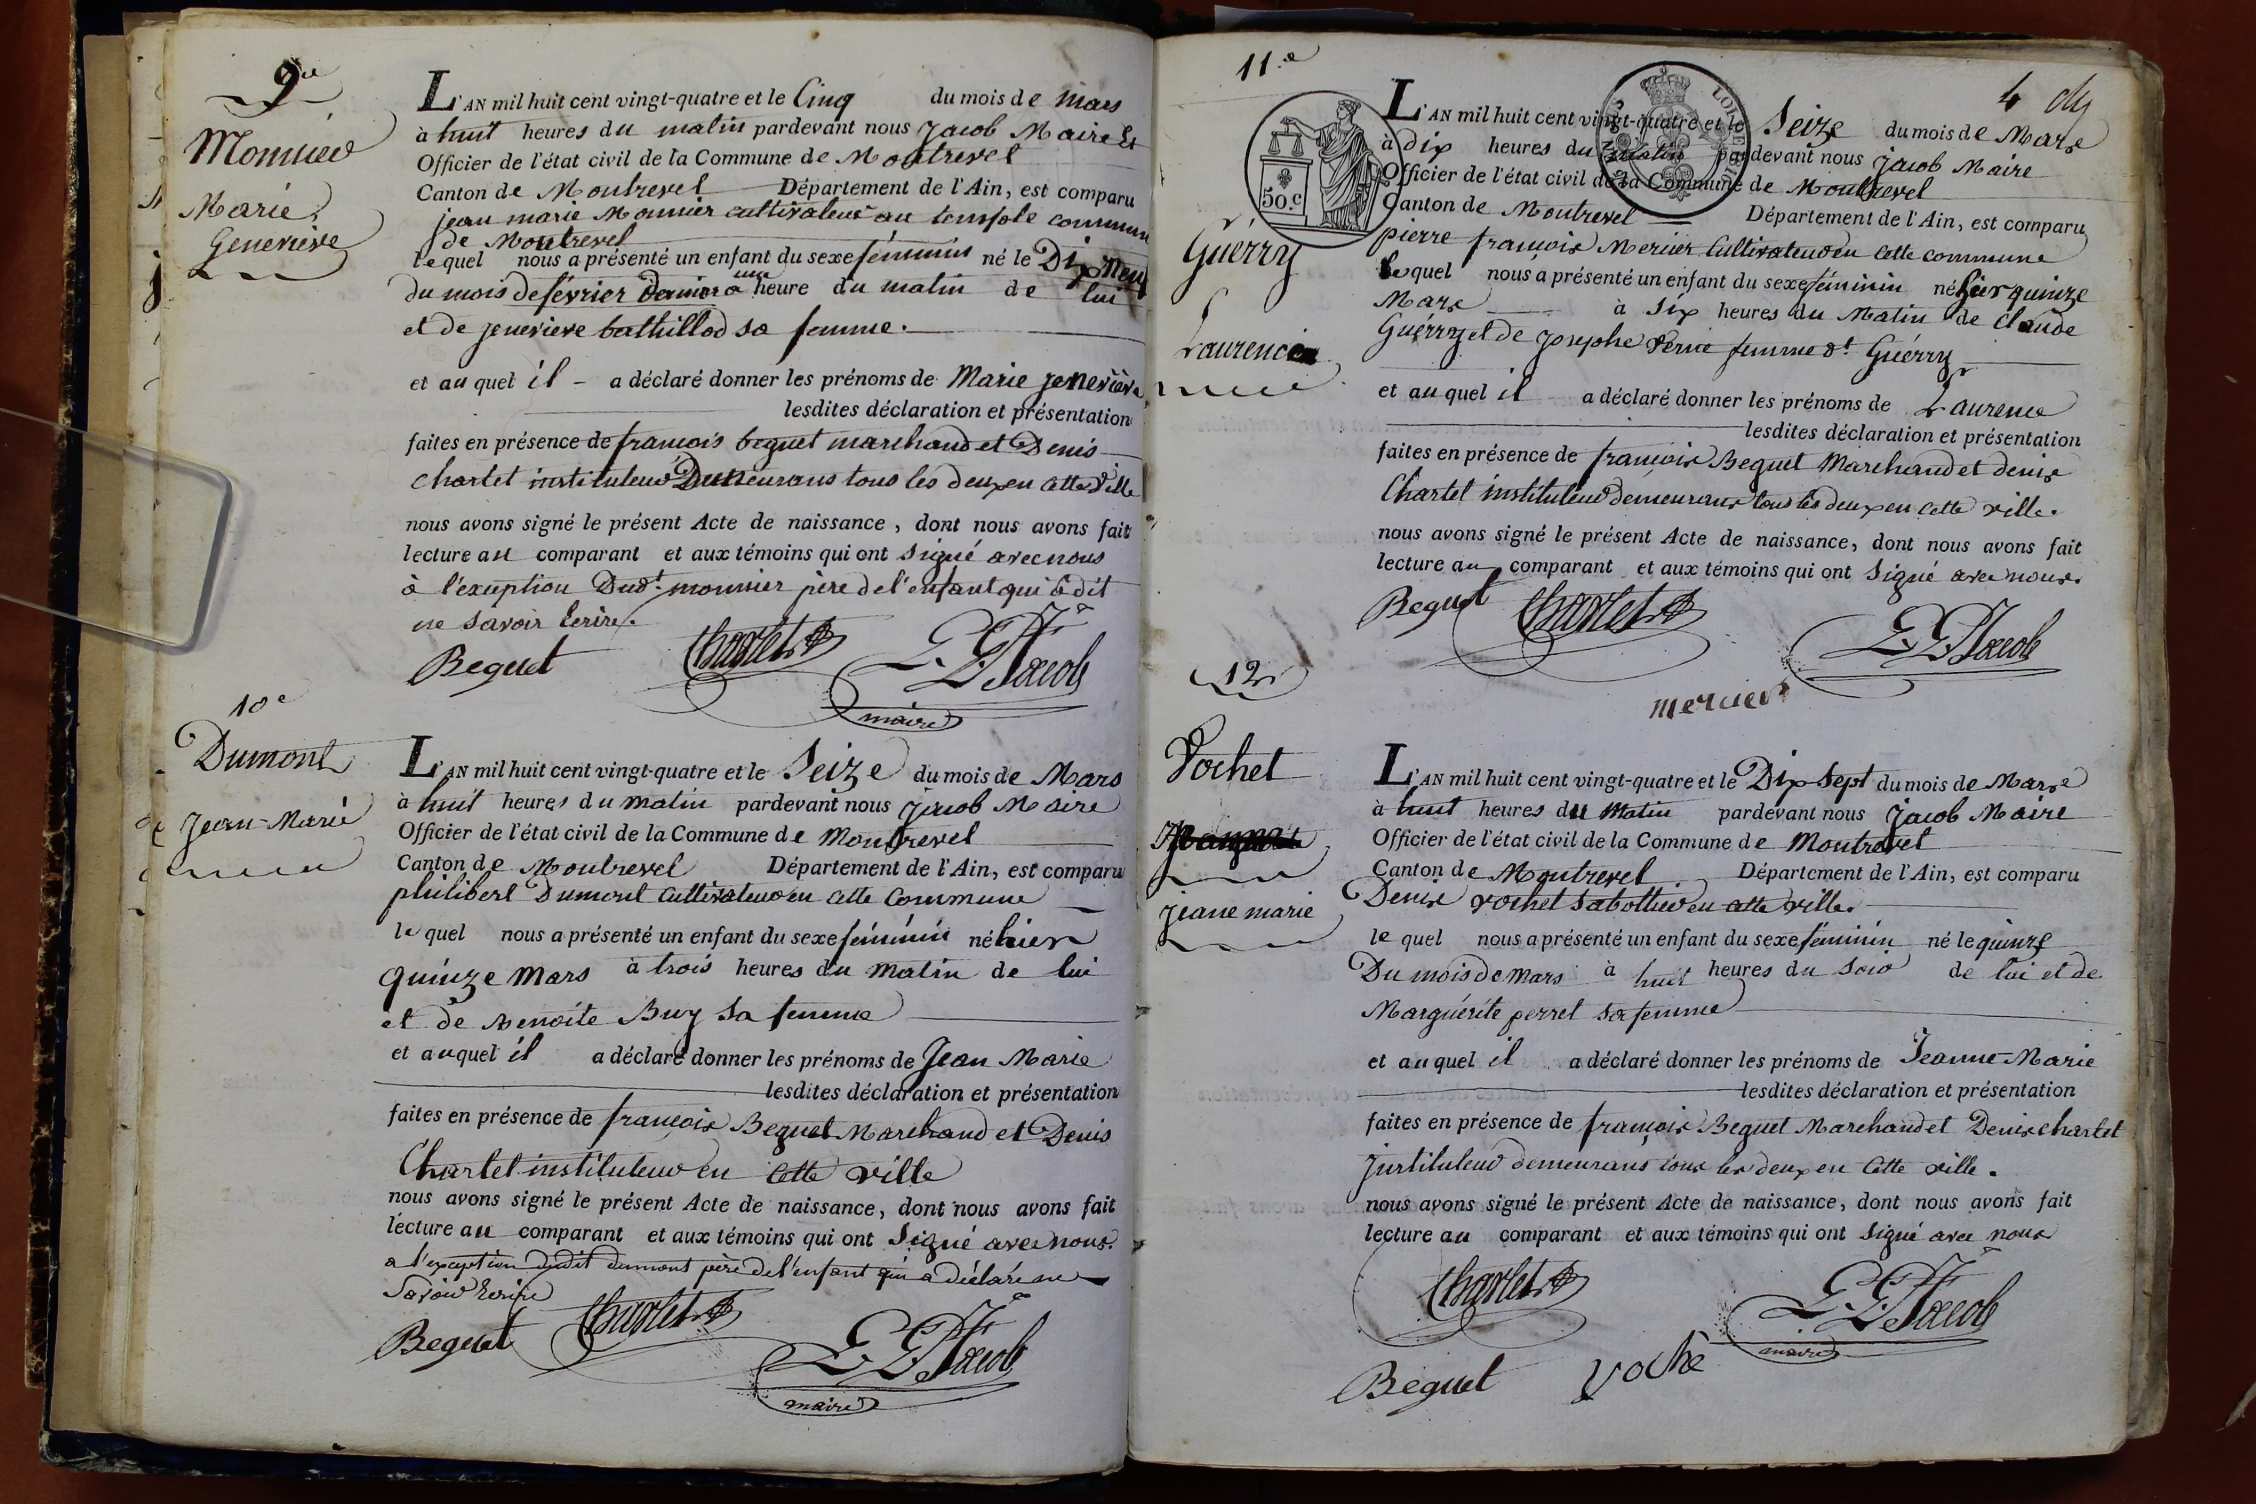 9e
Monnier
Marie
Geneviève
L'AN mil huit cent vingt-quatre et le Cinq du mois de Mars
à huit heures du matin pardevant nous Jacob Maire et
Officier de l'état civil de la Commune de Montrevel
Canton de Montrevel Département de l'Ain, est comparu
jean marie Monnier cultivateur au temple commune
de Montrevel
lequel nous a présenté un enfant du sexe féminin né le Dix Neuf
du mois de février Dernier à une heure du matin de lui
et de jenevieve bathillod sa femme.
et auquel il a déclaré donner les prénoms de Marie jenevieve
lesdites déclaration et présentation
faites en présence de françois beguet marchand et Denis
Chartet instituteur Demeurans tous les deux en cette Ville
nous avons signé le présent Acte de naissance, dont nous avons fait
lecture au comparant et aux témoins qui ont signé avec nous
à l'exception Dudt monnier père de l'enfant qui a dit
ne savoir Ecrire.
Beguet Chartet Jacob
maire
10e
Dumont
Jean-Marie
L'AN mil huit cent vingt-quatre et le Seize du mois de Mars
à huit heures du matin pardevant nous Jacob Maire
Officier de l'état civil de la Commune de Montrevel
Canton de Montrevel Département de l'Ain, est comparu
philibert Dumont Cultivateur en cette Commune
le quel nous a présenté un enfant du sexe féminin né hier
quinze Mars à trois heures du Matin de lui
et de Benoite Buy sa femme
et auquel il a déclaré donner les prénoms de Jean Marie
lesdites déclaration et présentation
faites en présence de françois Beguet Marchand et Denis
Chartet instituteur en Cette ville
nous avons signé le présent Acte de naissance, dont nous avons fait
lecture au comparant et aux témoins qui ont Signé avec nous.
a l'exception dudit dumont père de l'enfant qui a déclaré ne
Savoir Ecrire
Beguet Chartet Jacob
maire
11e
4
Guérry
Laurence
50.C
L'AN mil huit cent vingt-quatre et le Seize du mois de Mars
à dix heures du Matin pardevant nous Jacob Maire
Officier de l'état civil de la Commune de Montrevel
Canton de Montrevel Département de l'Ain, est comparu
pierre françois Mercier Cultivateur en cette commune
lequel nous a présenté un enfant du sexe féminin né hier quinze
Mars à six heures du Matin de Claude
Guérry et de Josephe femme dt Guérry
et auquel il a déclaré donner les prénoms de Laurence
lesdites déclaration et présentation
faites en présence de françois Beguet Marchand et denis
Chartet instituteur demeurans tous les deux en cette ville.
nous avons signé le présent Acte de naissance, dont nous avons fait
lecture au comparant et aux témoins qui ont signé avec nous.
Beguet Chartet Jacob
mercier
12
Vochet
jeane marie
L'AN mil huit cent vingt-quatre et le Dix Sept du mois de Mars
à huit heures du Matin pardevant nous Jacob Maire
Officier de l'état civil de la Commune de Montrevel
Canton de Montrevel Département de l'Ain, est comparu
Denis vochet Sabottier en cette ville.
le quel nous a présenté un enfant du sexe féminin né le quinze
Du mois de Mars à huit heures du Soir de lui et de
Marguérite perret sa femme
et auquel il a déclaré donner les prénoms de Jeanne-Marie
lesdites déclaration et présentation
faites en présence de françois Beguet Marchand et Denis Chartet
Jnstituteur demeurans tous les deux en Cette ville.
nous avons signé le présent Acte de naissance, dont nous avons fait
lecture au comparant et aux témoins qui ont signé avec nous
Chartet Jacob
maire
Beguet vochè